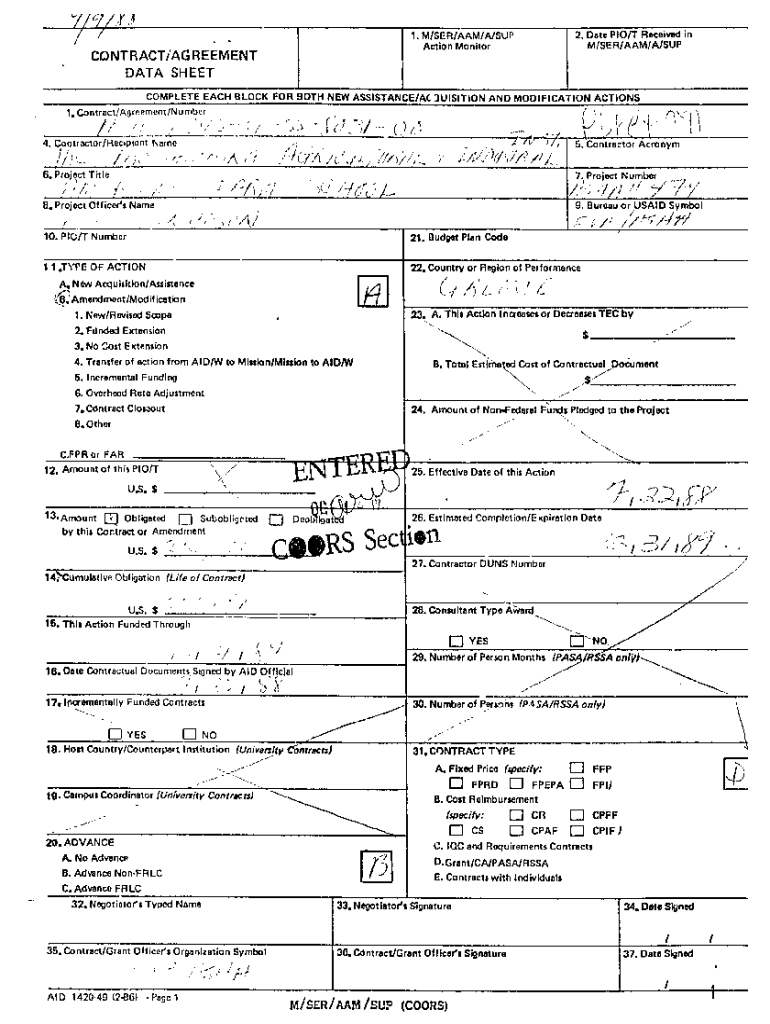 7/9/88
CONTRACT/AGREEMENT
DATA SHEET
1. M/SER/AAM/A/SUP
Action Monitor
2. Date PIO/T Received in
M/SER/AAM/A/SUP
COMPLETE EACH BLOCK FOR BOTH NEW ASSISTANCE/ACQUISITION AND MODIFICATION ACTIONS
1. Contract/Agreement/Number
4. Contractor/Recipient Name
5. Contractor Acronym
6. Project Title
FARM SCHOOL
7. Project Number
8. Project Officer's Name
9. Bureau or USAID Symbol
10. PIO/T Number
21. Budget Plan Code
11. TYPE OF ACTION
A. New Acquisition/Assistance
B. Amendment/Modification
1. New/Revised Scope
2. Funded Extension
3. No Cost Extension
4. Transfer of action from AID/W to Mission/Mission to AID/W
5. Incremental Funding
6. Overhead Rate Adjustment
7. Contract Closeout
8. Other
C. FPR or FAR
A
22. Country or Region of Performance
GREECE
23. A. This Action Increases or Decreases TEC by
$
B. Total Estimated Cost of Contractual Document
$
24. Amount of Non-Federal Funds Pledged to the Project
12. Amount of this PIO/T
U.S. $
ENTERED
COORS Section
25. Effective Date of this Action
7,22,88
13. Amount Obligated Subobligated Deobligated
by this Contract or Amendment
U.S. $
26. Estimated Completion/Expiration Date
,31,89
27. Contractor DUNS Number
14. Cumulative Obligation (Life of Contract)
U.S. $
28. Consultant Type Award
YES NO
15. This Action Funded Through
29. Number of Person Months (PASA/RSSA only)
16. Date Contractual Documents Signed by AID Official
17. Incrementally Funded Contracts
YES NO
30. Number of Persons (PASA/RSSA only)
18. Host Country/Counterpart Institution (University Contracts)
31. CONTRACT TYPE
A. Fixed Price (specify: FFP
FPRD FPEPA FPI)
B. Cost Reimbursement
(specify: CR CPFF
CS CPAF CPIF)
C. IQC and Requirements Contracts
D. Grant/CA/PASA/RSSA
E. Contracts with Individuals
D
19. Campus Coordinator (University Contracts)
20. ADVANCE
A. No Advance
B. Advance Non-FRLC
C. Advance FRLC
B
32. Negotiator's Typed Name
33. Negotiator's Signature
34. Date Signed
/ /
35. Contract/Grant Officer's Organization Symbol
36. Contract/Grant Officer's Signature
37. Date Signed
/ /
AID 1420-49 (2-86) - Page 1
M/SER/AAM/SUP (COORS)